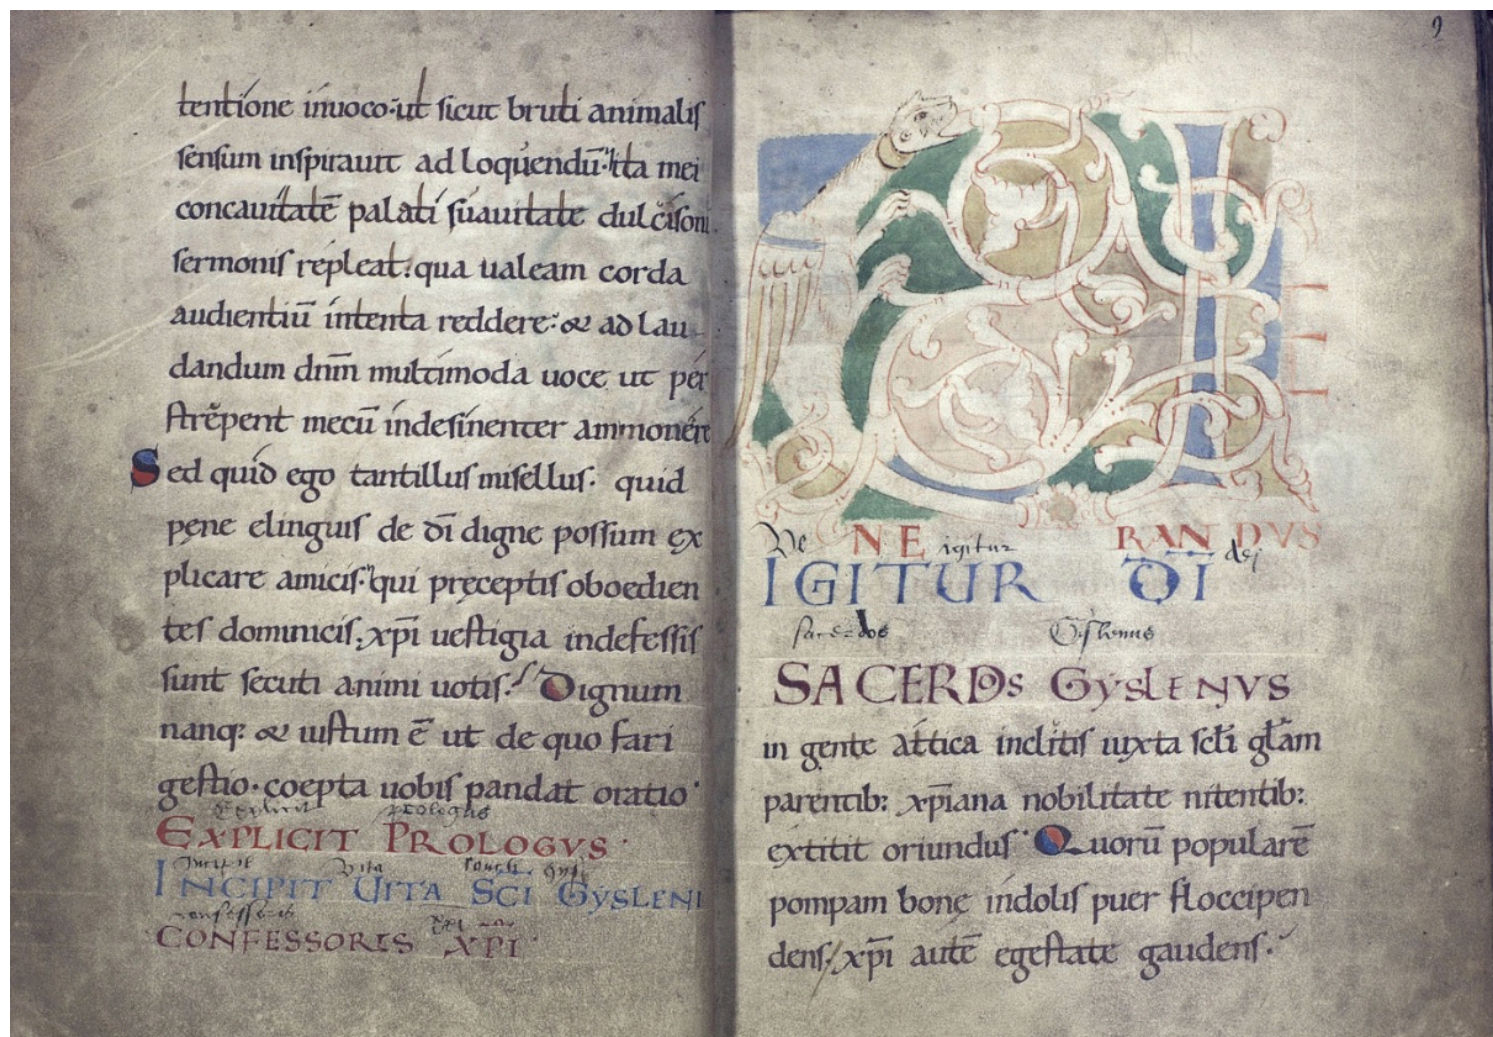 tentione inuoco·ut sicut bruti animalis
sensum inspirauit ad loquendū· ita mei
concauitatē palati suauitate dulcisoni
sermonis repleat. qua ualeam corda
audientiū intenta reddere· & ad lau
dandum dn̄m multimoda uoce ut per
strepent mecū indesinenter ammonere
Sed quid ego tantillus misellus· quid
pene elinguis de dī digne possum ex
plicare amicis· qui pręceptis oboedien
tes dominicis, xp̄i uestigia indefessis
sunt secuti animi uotis? Dignum
nanq; & iustum ē ut de quo fari
gestio· coepta uobis pandat oratio·
Explicit prologus
EXPLICIT PROLOGVS·
Incipit Vita
INCIPIT UITA SCĪ GYSLENI
confessoris
CONFESSORIS XP̄I·
9
VE
Ve NE igitur RANDVS
IGITUR DĪ dei
sacerdos Gislenus
SACERDOS GYSLENVS
in gente attica inclitis iuxta sc̄li gl̄am
parentib; xp̄iana nobilitate nitentib;
extitit oriundus· Quorū popularē
pompam bonę indolis puer floccipen
dens, xp̄i autē egestate gaudens·